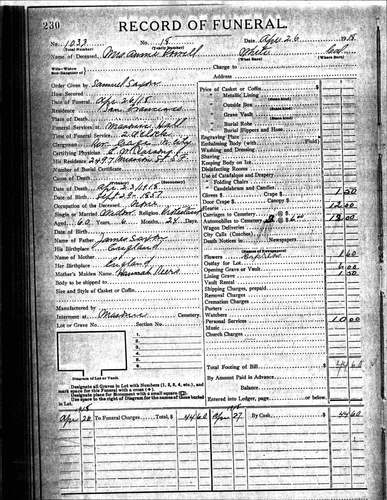 230
RECORD OF FUNERAL.
No. 1033 No. 18 Date, Apr 26 1918
(Total Number) (Yearly Number)
Name of Deceased, Mrs Annie Powell White
(What Race) (Where Born)
Charge to
Address
Order Given by Samuel Saxby
How Secured
Date of Funeral Apr 26/18
Residence San Francisco
Place of Death
Funeral Services at Masonic Hall
Time of Funeral Service 2 o'clock
Clergyman
Certifying Physician
His Residence 2497 Mission St S.F.
Number of Burial Certificate
Cause of Death
Date of Death Apr 23/1918
Date of Birth Sept 29 1857
Occupation of the Deceased None
Single or Married Widow Religion Protestant
Aged 60 6 24 Days
Date of Birth
Name of Father James Saxby
His Birthplace England
Name of Mother
Her Birthplace England
Mother's Maiden Name Hannah
Body to be shipped to
Size and Style of Casket or Coffin
Manufactured by
Interment at Masonic Cemetery
Lot or Grave No. Section No.
1.
2.
3.
4.
5.
6.
Diagram of Lot or Vault.
Designate all Graves in Lot with Numbers (1, 2, 3, 4, etc.), and mark space for this Funeral with a cross (+)
Designate place for Monument with a small square (□)
Use space to the right of Diagram for the names of those buried in Lot.
Price of Casket or Coffin
" Metallic Lining
" Outside Box
" Grave Vault
" Burial Robe
" Burial Slippers and Hose
Engraving Plate
Embalming Body
Washing and Dressing
Shaving
Keeping Body on Ice
Disinfecting Rooms
Use of Catafalque and Drapery
" Folding Chairs
" Candelabrum and Candles
Gloves $ Crape $ 1 50
Door Crape
Hearse 12 00
Carriages to Cemetery
Automobiles to Cemetery 18 00
Wagon Deliveries
City Calls (Coaches)
Death Notices in Newspapers
Flowers Express 1 60
Outlay for Lot
Opening Grave or Vault
Lining Grave 1 50
Vault Rental
Shipping Charges, prepaid
Removal Charges
Cremation Charges
Porters
Watchers
Personal Services 10 00
Music
Church Charges
Total Footing of Bill 44 60
By Amount Paid in Advance
Balance
Entered into Ledger, page or below.
1918 1918
Apr 26 To Funeral Charges Total, $ 44 60 Apr 27 By Cash $ 44 60